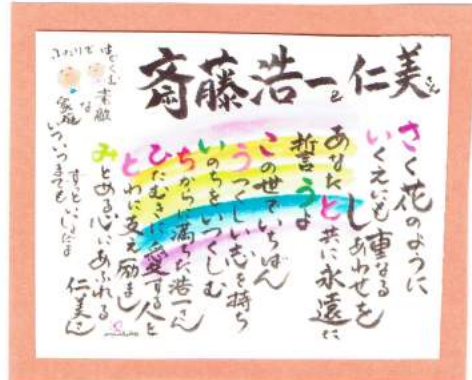 齋藤浩一と仁美さん
さく花のように
いくえにも重なる
しあわせを
あなたと共に永遠に
誓うよ
この世でいちばん
うつくしい志を持ち
いのちをいつくしむ
ちからに満ちた浩一さん
ひたむきに愛する人と
とわに支え励まし
みとめる心にあふれる
仁美さん
ふたりで
はぐくむ
素敵
な
家族
いついつまでも
ずっといっしょだよ